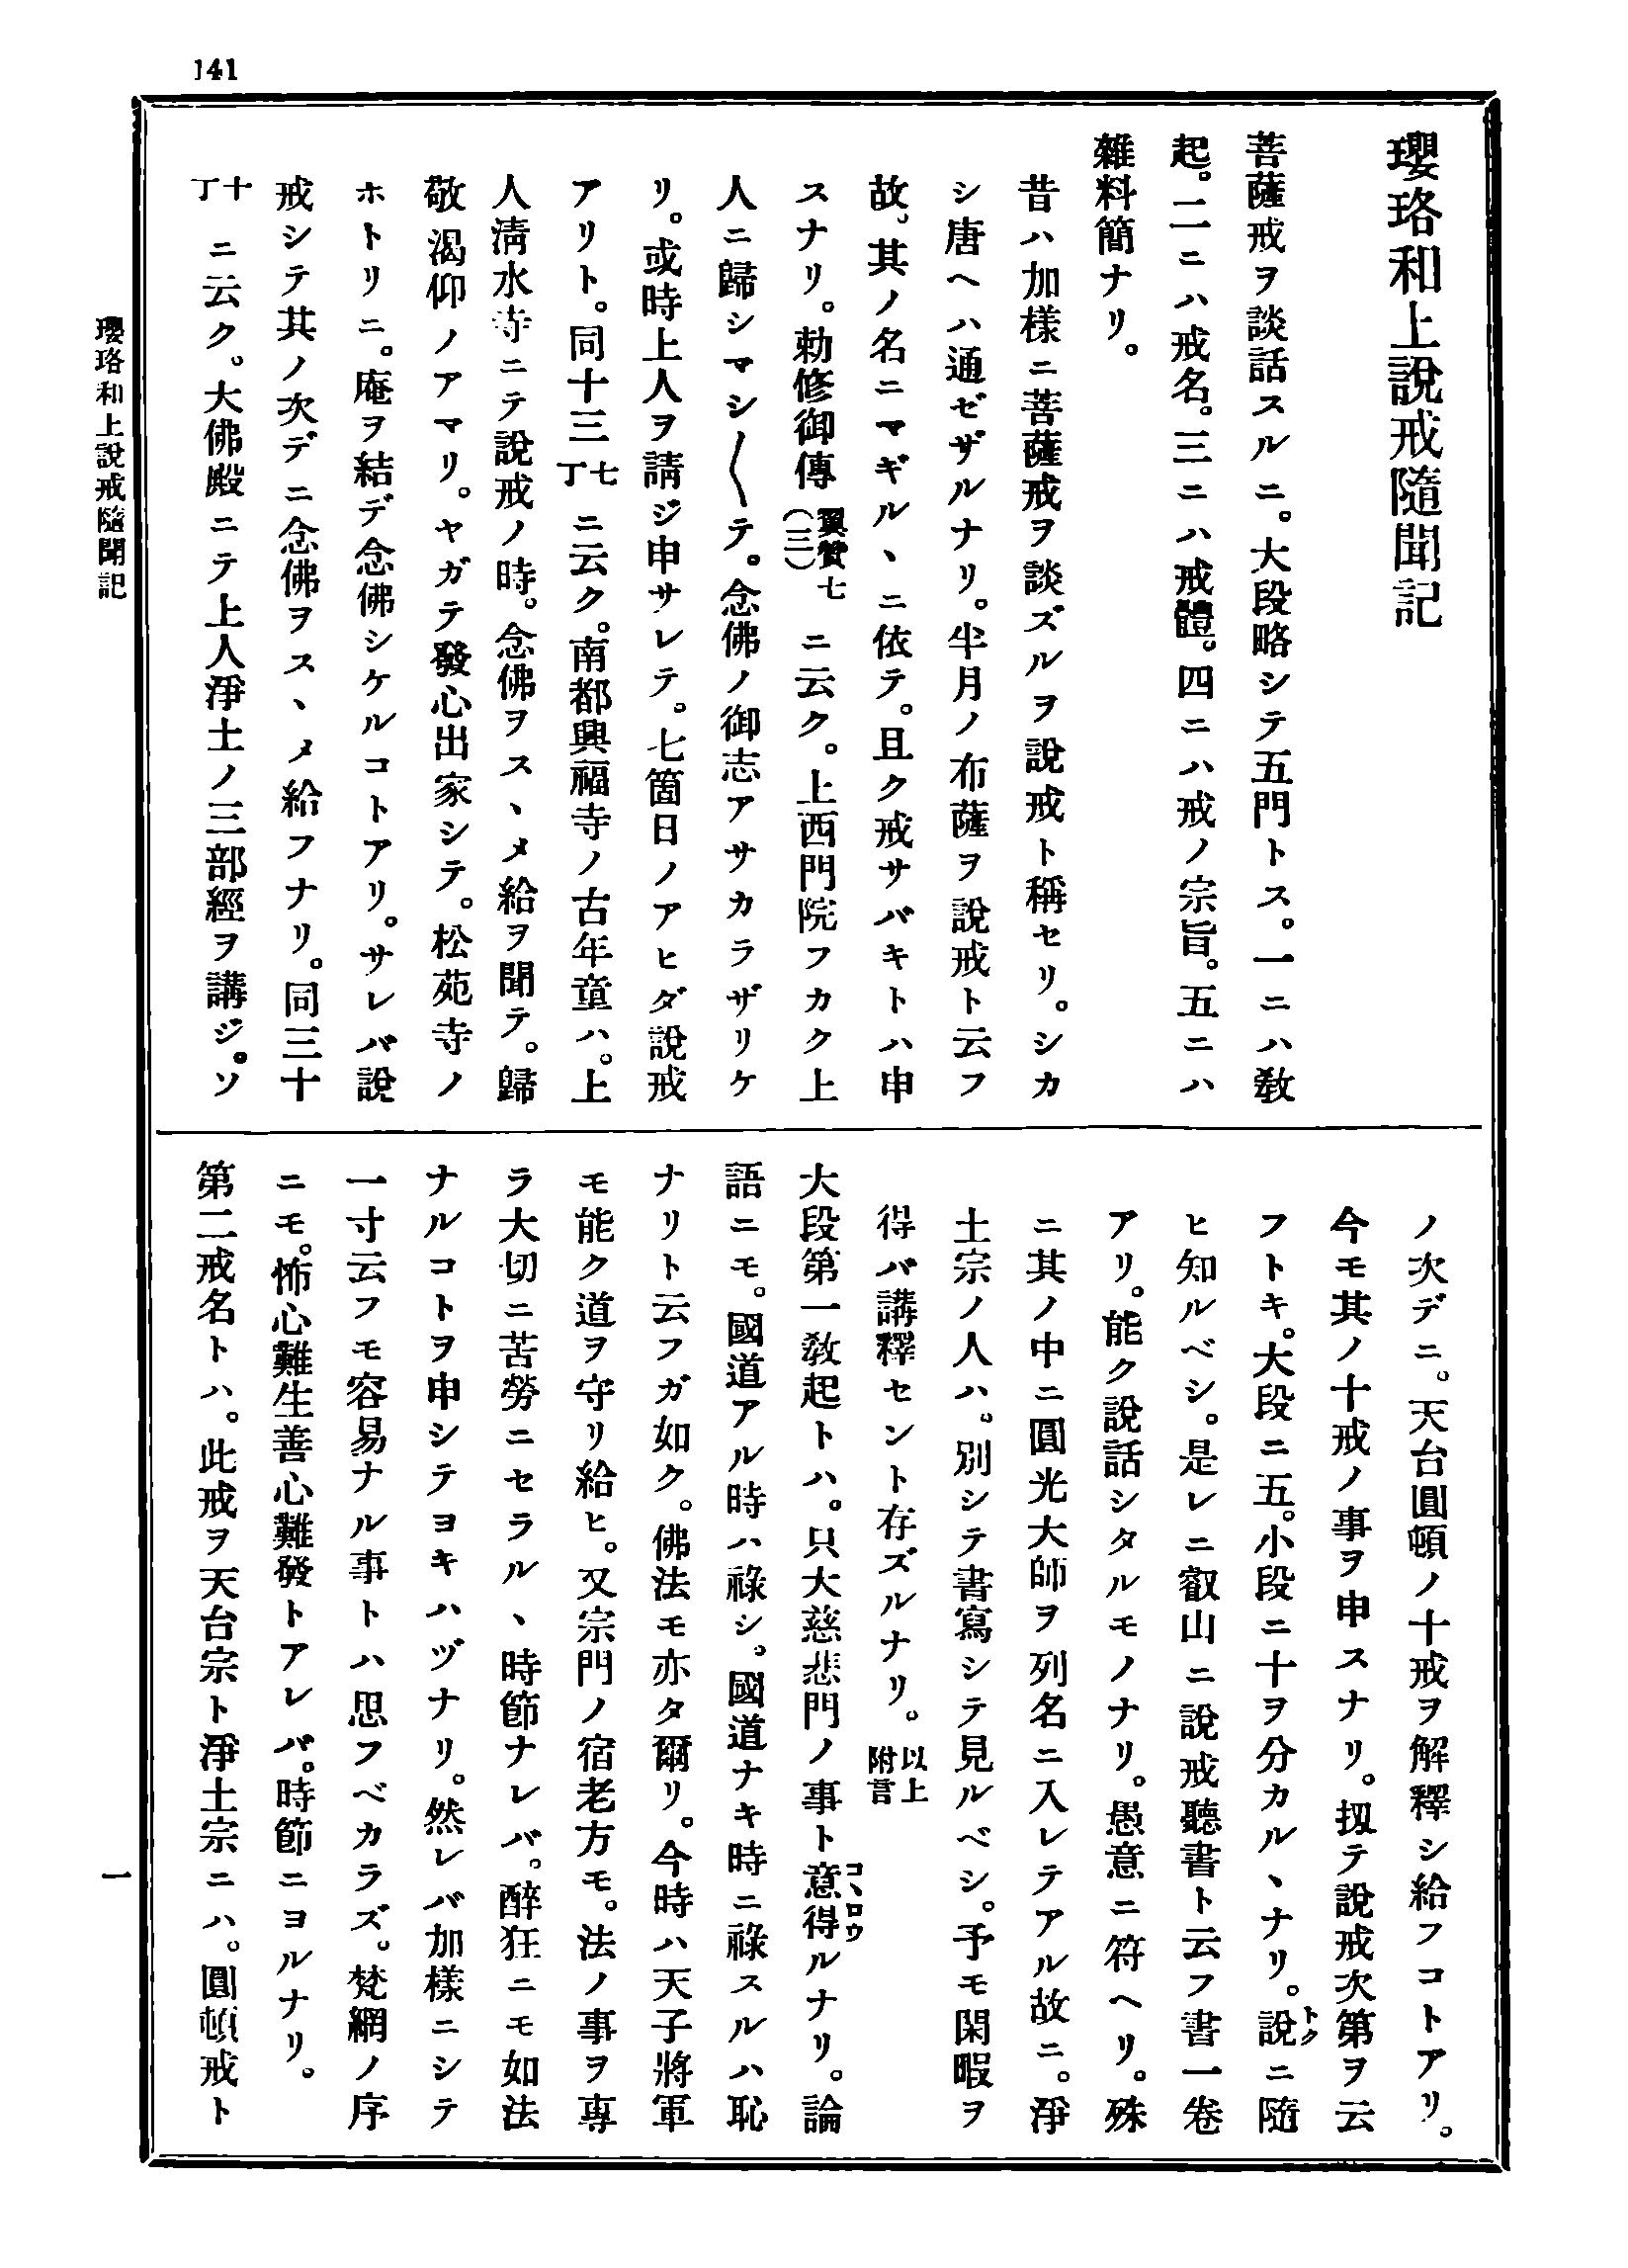 141
瓔珞和上說戒隨聞記
菩薩戒ヲ談話スルニ。大段略シテ五門トス。一ニハ敎
起。二ニハ戒名。三ニハ戒體。四ニハ戒ノ宗旨。五ニハ
雜料簡ナリ。
昔ハ加樣ニ菩薩戒ヲ談ズルヲ說戒ト稱セリ。シカ
シ唐ヘハ通ゼザルナリ。半月ノ布薩ヲ說戒ト云フ
故。其ノ名ニマギルヽニ依テ。且ク戒サバキトハ申
スナリ。勅修御傳翼贊七(三)ニ云ク。上西門院フカク上
人ニ歸シマシ〱テ。念佛ノ御志アサカラザリケ
リ。或時上人ヲ請ジ申サレテ。七箇日ノアヒダ說戒
アリト。同十三七丁ニ云ク。南都興福寺ノ古年童ハ。上
人淸水寺ニテ說戒ノ時。念佛ヲスヽメ給ヲ聞テ。歸
敬渴仰ノアマリ。ヤガテ發心出家シテ。松苑寺ノ
ホトリニ。庵ヲ結デ念佛シケルコトアリ。サレバ說
戒シテ其ノ次デニ念佛ヲスヽメ給フナリ。同三十
十丁ニ云ク。大佛殿ニテ上人淨土ノ三部經ヲ講ジ。ソ
ノ次デニ。天台圓頓ノ十戒ヲ解釋シ給フコトアリ。
今モ其ノ十戒ノ事ヲ申スナリ。扨テ說戒次第ヲ云
フトキ。大段ニ五。小段ニ十ヲ分カルヽナリ。說トクニ隨
ヒ知ルベシ。是レニ叡山ニ說戒聽書ト云フ書一卷
アリ。能ク說話シタルモノナリ。愚意ニ符ヘリ。殊
ニ其ノ中ニ圓光大師ヲ列名ニ入レテアル故ニ。淨
土宗ノ人ハ。別シテ書寫シテ見ルベシ。予モ閑暇ヲ
得バ講釋セント存ズルナリ。以上附言
大段第一敎起トハ。只大慈悲門ノ事ト意得コヽロウルナリ。論
語ニモ。國道アル時ハ祿シ。國道ナキ時ニ祿スルハ恥
ナリト云フガ如ク。佛法モ亦タ爾リ。今時ハ天子將軍
モ能ク道ヲ守リ給ヒ。又宗門ノ宿老方モ。法ノ事ヲ專
ラ大切ニ苦勞ニセラルヽ時節ナレバ。醉狂ニモ如法
ナルコトヲ申シテヨキハヅナリ。然レバ加樣ニシテ
一寸云フモ容易ナル事トハ思フベカラズ。梵網ノ序
ニモ。怖心難生善心難發トアレバ。時節ニヨルナリ。
第二戒名トハ。此戒ヲ天台宗ト淨土宗ニハ。圓頓戒ト
瓔珞和上說戒隨聞記
一